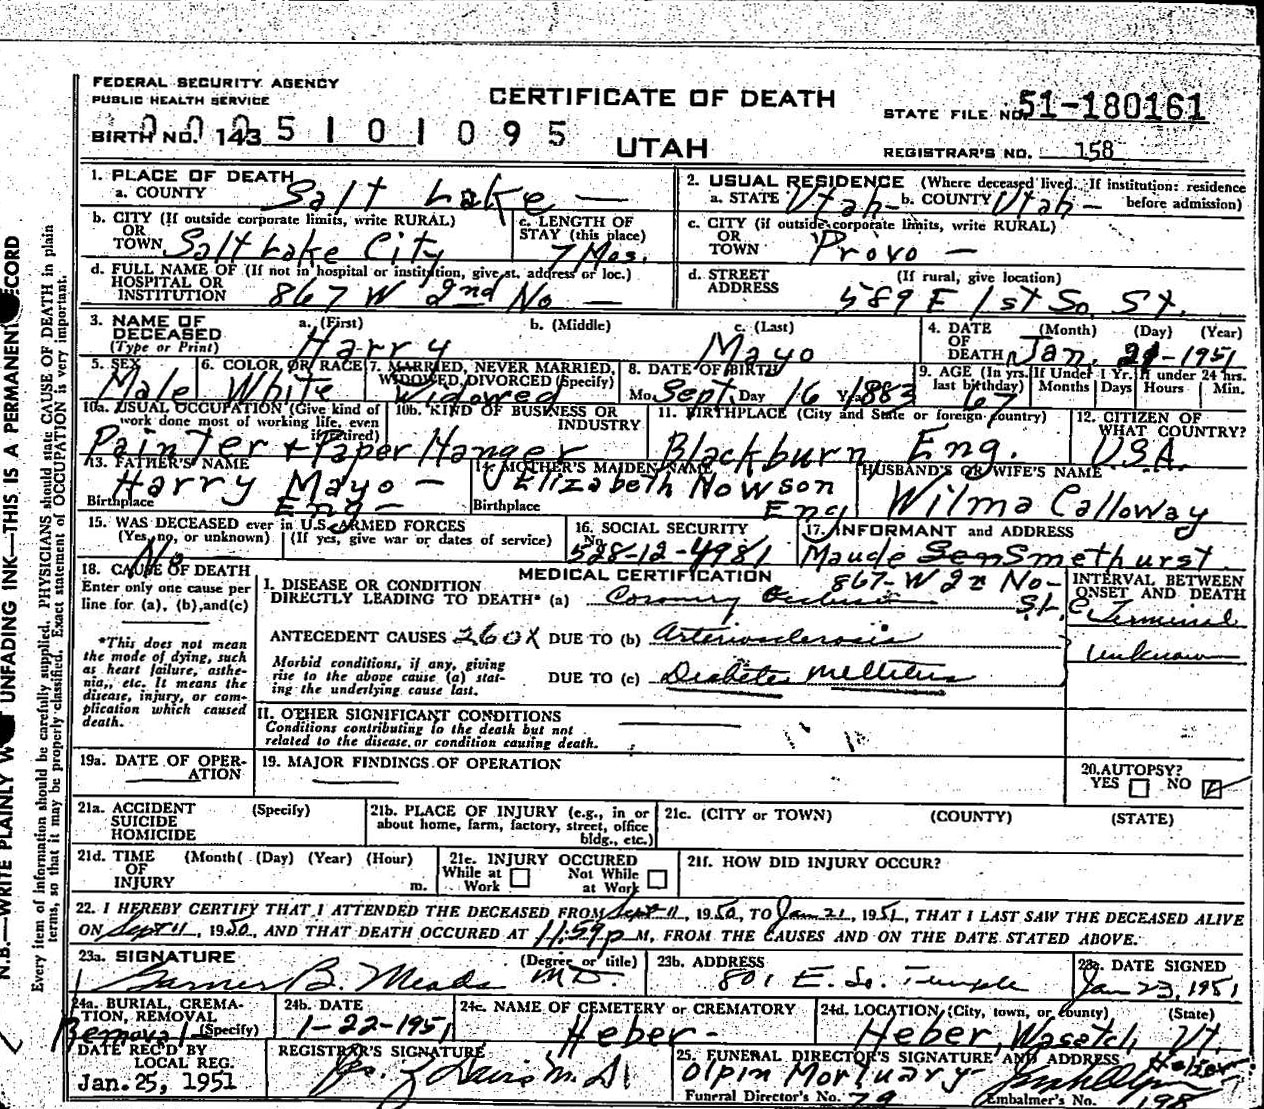 FEDERAL SECURITY AGENCY
PUBLIC HEALTH SERVICE
CERTIFICATE OF DEATH
STATE FILE NO. 51-180161
BIRTH NO. 143
0005101095
UTAH
REGISTRAR'S NO. 158
1. PLACE OF DEATH
a. COUNTY Salt Lake —
2. USUAL RESIDENCE (Where deceased lived. If institution: residence before admission)
a. STATE Utah - b. COUNTY Utah -
b. CITY (If outside corporate limits, write RURAL)
OR
TOWN Salt Lake City
c. LENGTH OF
STAY (this place)
7 Mos.
c. CITY (if outside corporate limits, write RURAL)
OR
TOWN Provo —
d. FULL NAME OF (If not in hospital or institution, give st. address or loc.)
HOSPITAL OR
INSTITUTION 867 W 2nd No —
d. STREET (If rural, give location)
ADDRESS 589 E 1st So. St.
3. NAME OF
DECEASED
(Type or Print)
a. (First) Harry
b. (Middle)
c. (Last) Mayo
4. DATE (Month) (Day) (Year)
OF
DEATH Jan. 21-1951
5. SEX
Male
6. COLOR OR RACE
White
7. MARRIED, NEVER MARRIED,
WIDOWED, DIVORCED (Specify)
Widowed
8. DATE OF BIRTH
Mo. Sept. Day 16 Yr. 1883
9. AGE (In yrs. last birthday)
67
If Under 1 Yr. Months Days
If under 24 hrs. Hours Min.
10a. USUAL OCCUPATION (Give kind of
work done most of working life, even
if retired)
10b. KIND OF BUSINESS OR
INDUSTRY
Painter + Paper Hanger
11. BIRTHPLACE (City and State or foreign country)
Blackburn Eng.
12. CITIZEN OF
WHAT COUNTRY?
U.S.A.
13. FATHER'S NAME
Harry Mayo -
Birthplace Eng -
14. MOTHER'S MAIDEN NAME
Elizabeth Nowson
Birthplace Eng
HUSBAND'S OR WIFE'S NAME
Wilma Calloway
15. WAS DECEASED ever in U.S. ARMED FORCES
(Yes, no, or unknown) (If yes, give war or dates of service)
No
16. SOCIAL SECURITY
No.
528-12-4981
17. INFORMANT and ADDRESS
Maude Smethurst
867-W 2n No-
St.
18. CAUSE OF DEATH
Enter only one cause per
line for (a), (b), and (c)
MEDICAL CERTIFICATION
I. DISEASE OR CONDITION
DIRECTLY LEADING TO DEATH* (a) Coronary Occlusion
INTERVAL BETWEEN
ONSET AND DEATH
Terminal
*This does not mean
the mode of dying, such
as heart failure, asthe-
nia,, etc. It means the
disease, injury, or com-
plication which caused
death.
ANTECEDENT CAUSES 260X DUE TO (b) Arteriosclerosis
Unknown
Morbid conditions, if any, giving
rise to the above cause (a) stat-
ing the underlying cause last.
DUE TO (c) Diabetes Mellitus
II. OTHER SIGNIFICANT CONDITIONS
Conditions contributing to the death but not
related to the disease or condition causing death.
19a. DATE OF OPER-
ATION
19. MAJOR FINDINGS OF OPERATION
20. AUTOPSY?
YES NO
21a. ACCIDENT (Specify)
SUICIDE
HOMICIDE
21b. PLACE OF INJURY (e.g., in or
about home, farm, factory, street, office
bldg., etc.)
21c. (CITY or TOWN) (COUNTY) (STATE)
21d. TIME (Month( (Day) (Year) (Hour)
OF
INJURY m.
21e. INJURY OCCURED
While at Work Not While at Work
21f. HOW DID INJURY OCCUR?
22. I HEREBY CERTIFY THAT I ATTENDED THE DECEASED FROM Sept 11, 1950, TO Jan 21, 1951, THAT I LAST SAW THE DECEASED ALIVE
ON Sept 11, 1950, AND THAT DEATH OCCURED AT 11:59 p M, FROM THE CAUSES AND ON THE DATE STATED ABOVE.
23a. SIGNATURE (Degree or title)
Garner B. Meads M.D.
23b. ADDRESS
801 E. So. Temple
23c. DATE SIGNED
Jan 23, 1951
24a. BURIAL, CREMA-
TION, REMOVAL
(Specify)
Removal
24b. DATE
1-22-1951
24c. NAME OF CEMETERY or CREMATORY
Heber -
24d. LOCATION (City, town, or county) (State)
Heber, Wasatch, Ut.
DATE REC'D BY
LOCAL REG.
Jan. 25, 1951
REGISTRAR'S SIGNATURE
Davis M.D.
25. FUNERAL DIRECTOR'S SIGNATURE AND ADDRESS
Olpin Mortuary Heber
Funeral Director's No. 79
Embalmer's No. 198
N.B.—WRITE PLAINLY WITH UNFADING INK—THIS IS A PERMANENT RECORD
Every item of information should be carefully supplied. PHYSICIANS should state CAUSE OF DEATH in plain
terms, so that it may be properly classified. Exact statement of OCCUPATION is very important.